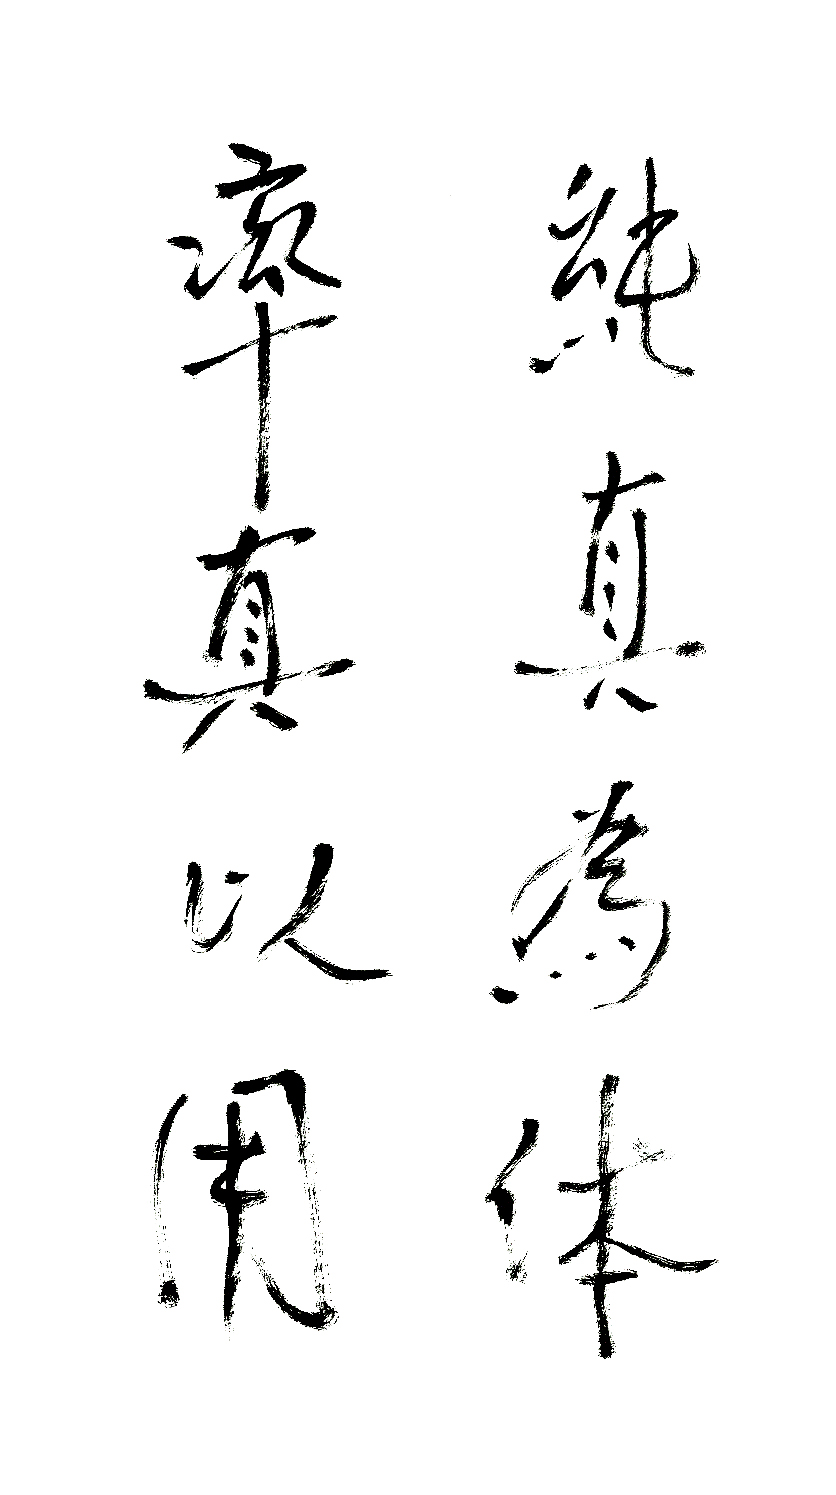 純真為体
率真以用